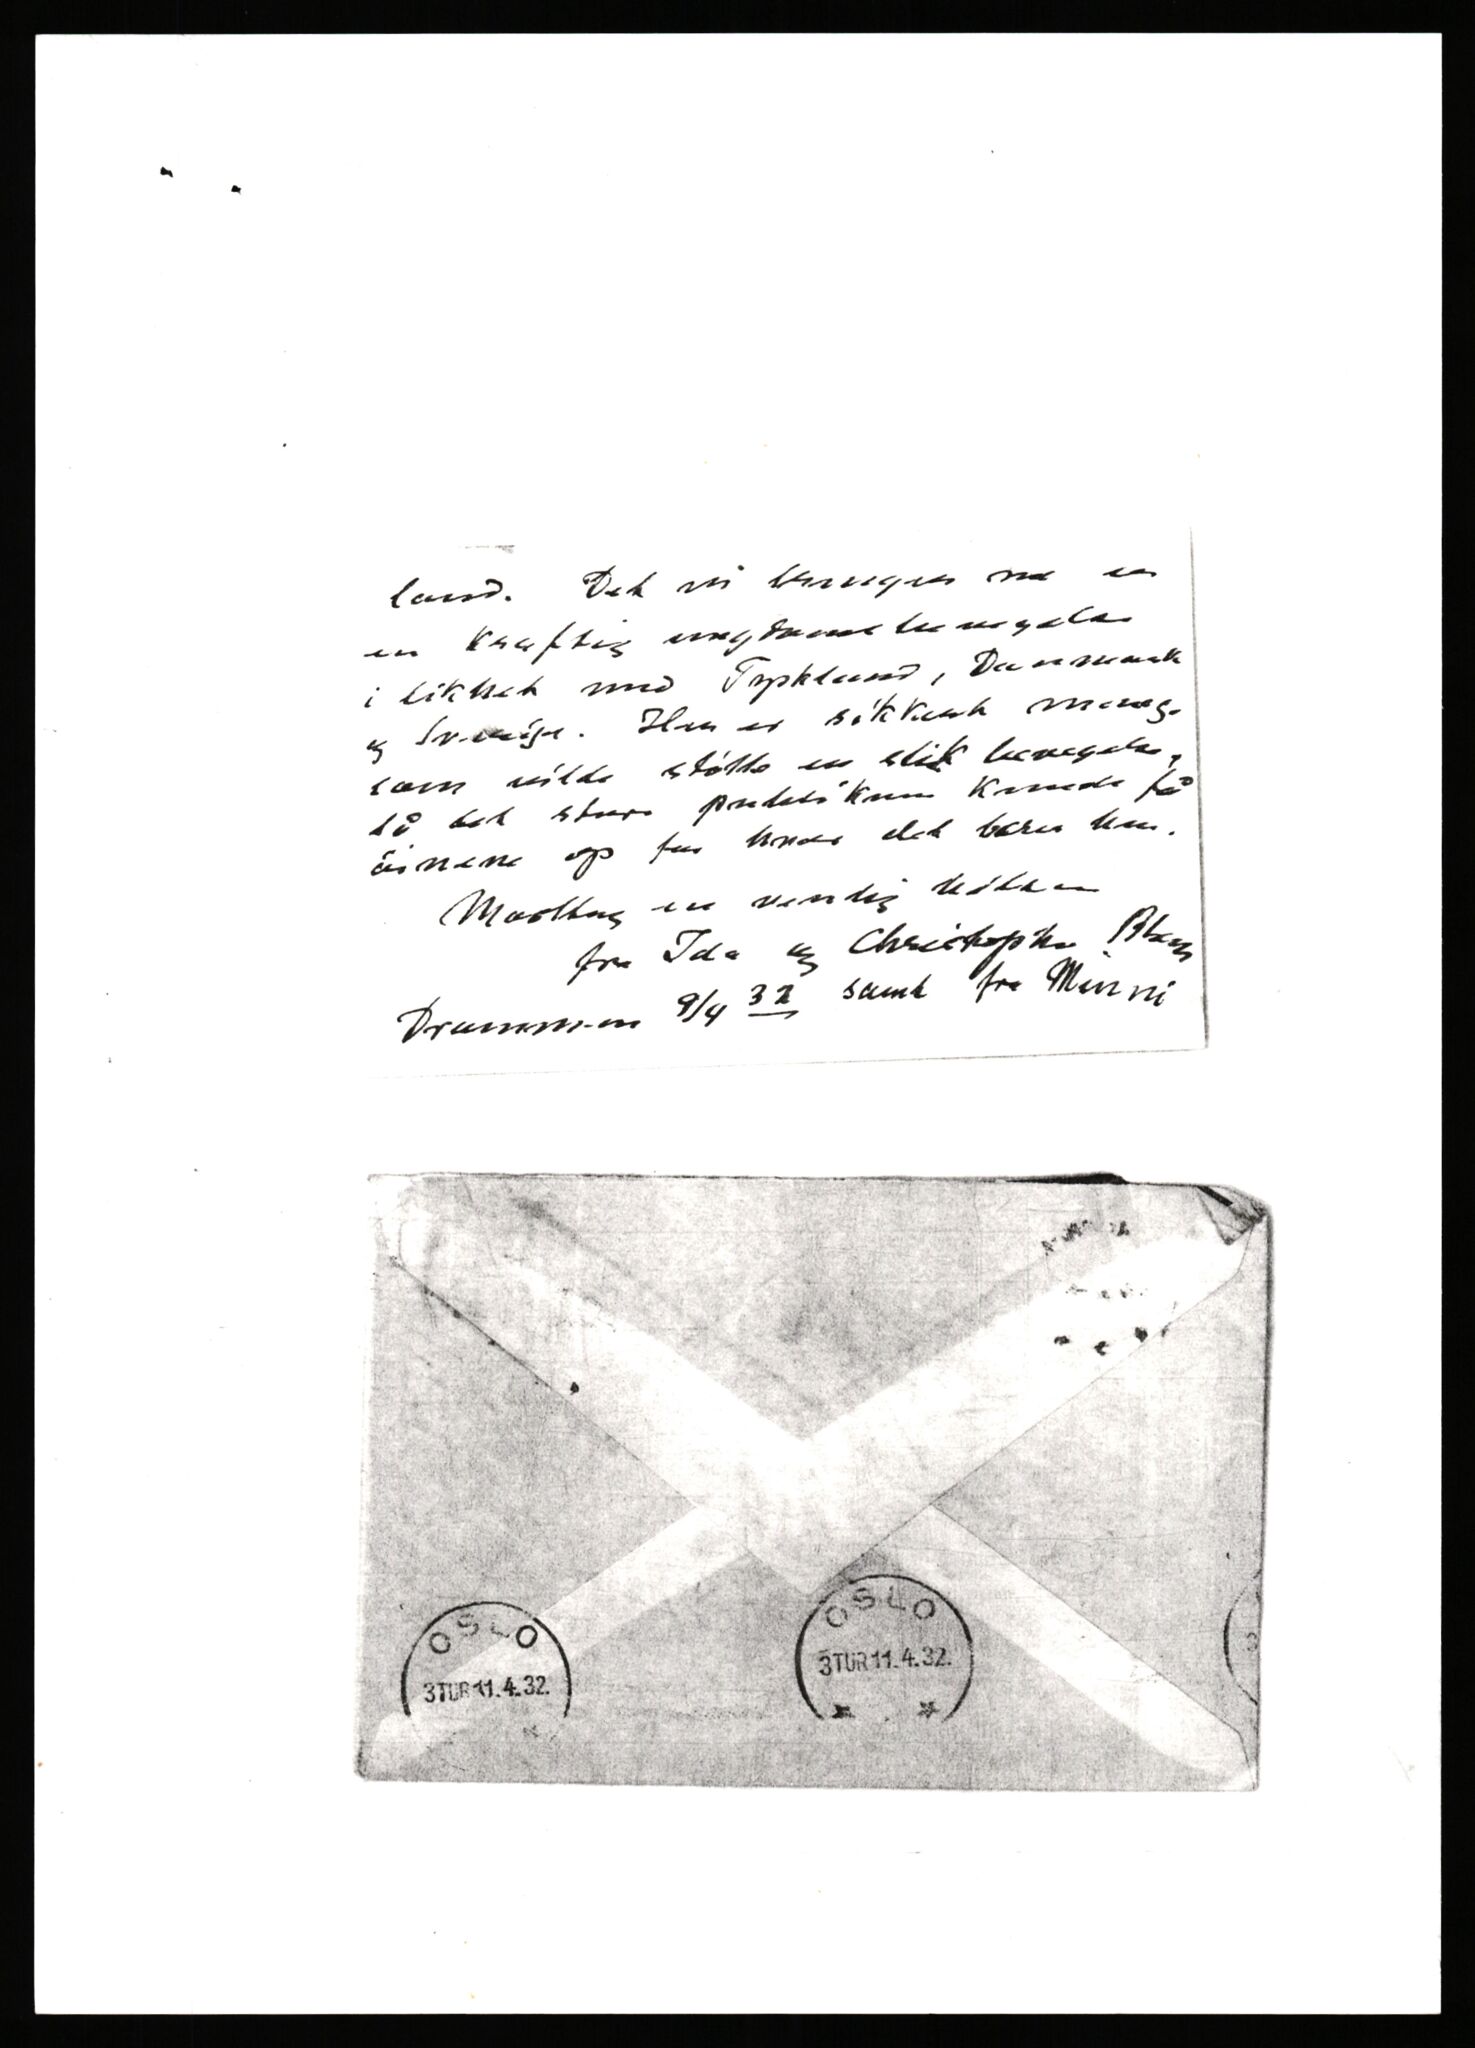 land. Det vi trenger nu er
en kraftig ungdomsbevegelse
i likhet med Tyskland, Danmark
og Sverige. Her er sikkert mange
som vilde støtte en slik bevegelse,
så det store publikum kunde få
öinene op for hvad det bærer hen.
Mottag en venlig hilsen
fra Ida og Christopher
Drammen 9/4 32 samt fra Minni
OSLO
3TUR11.4.32.
OSLO
3TUR11.4.32.
3